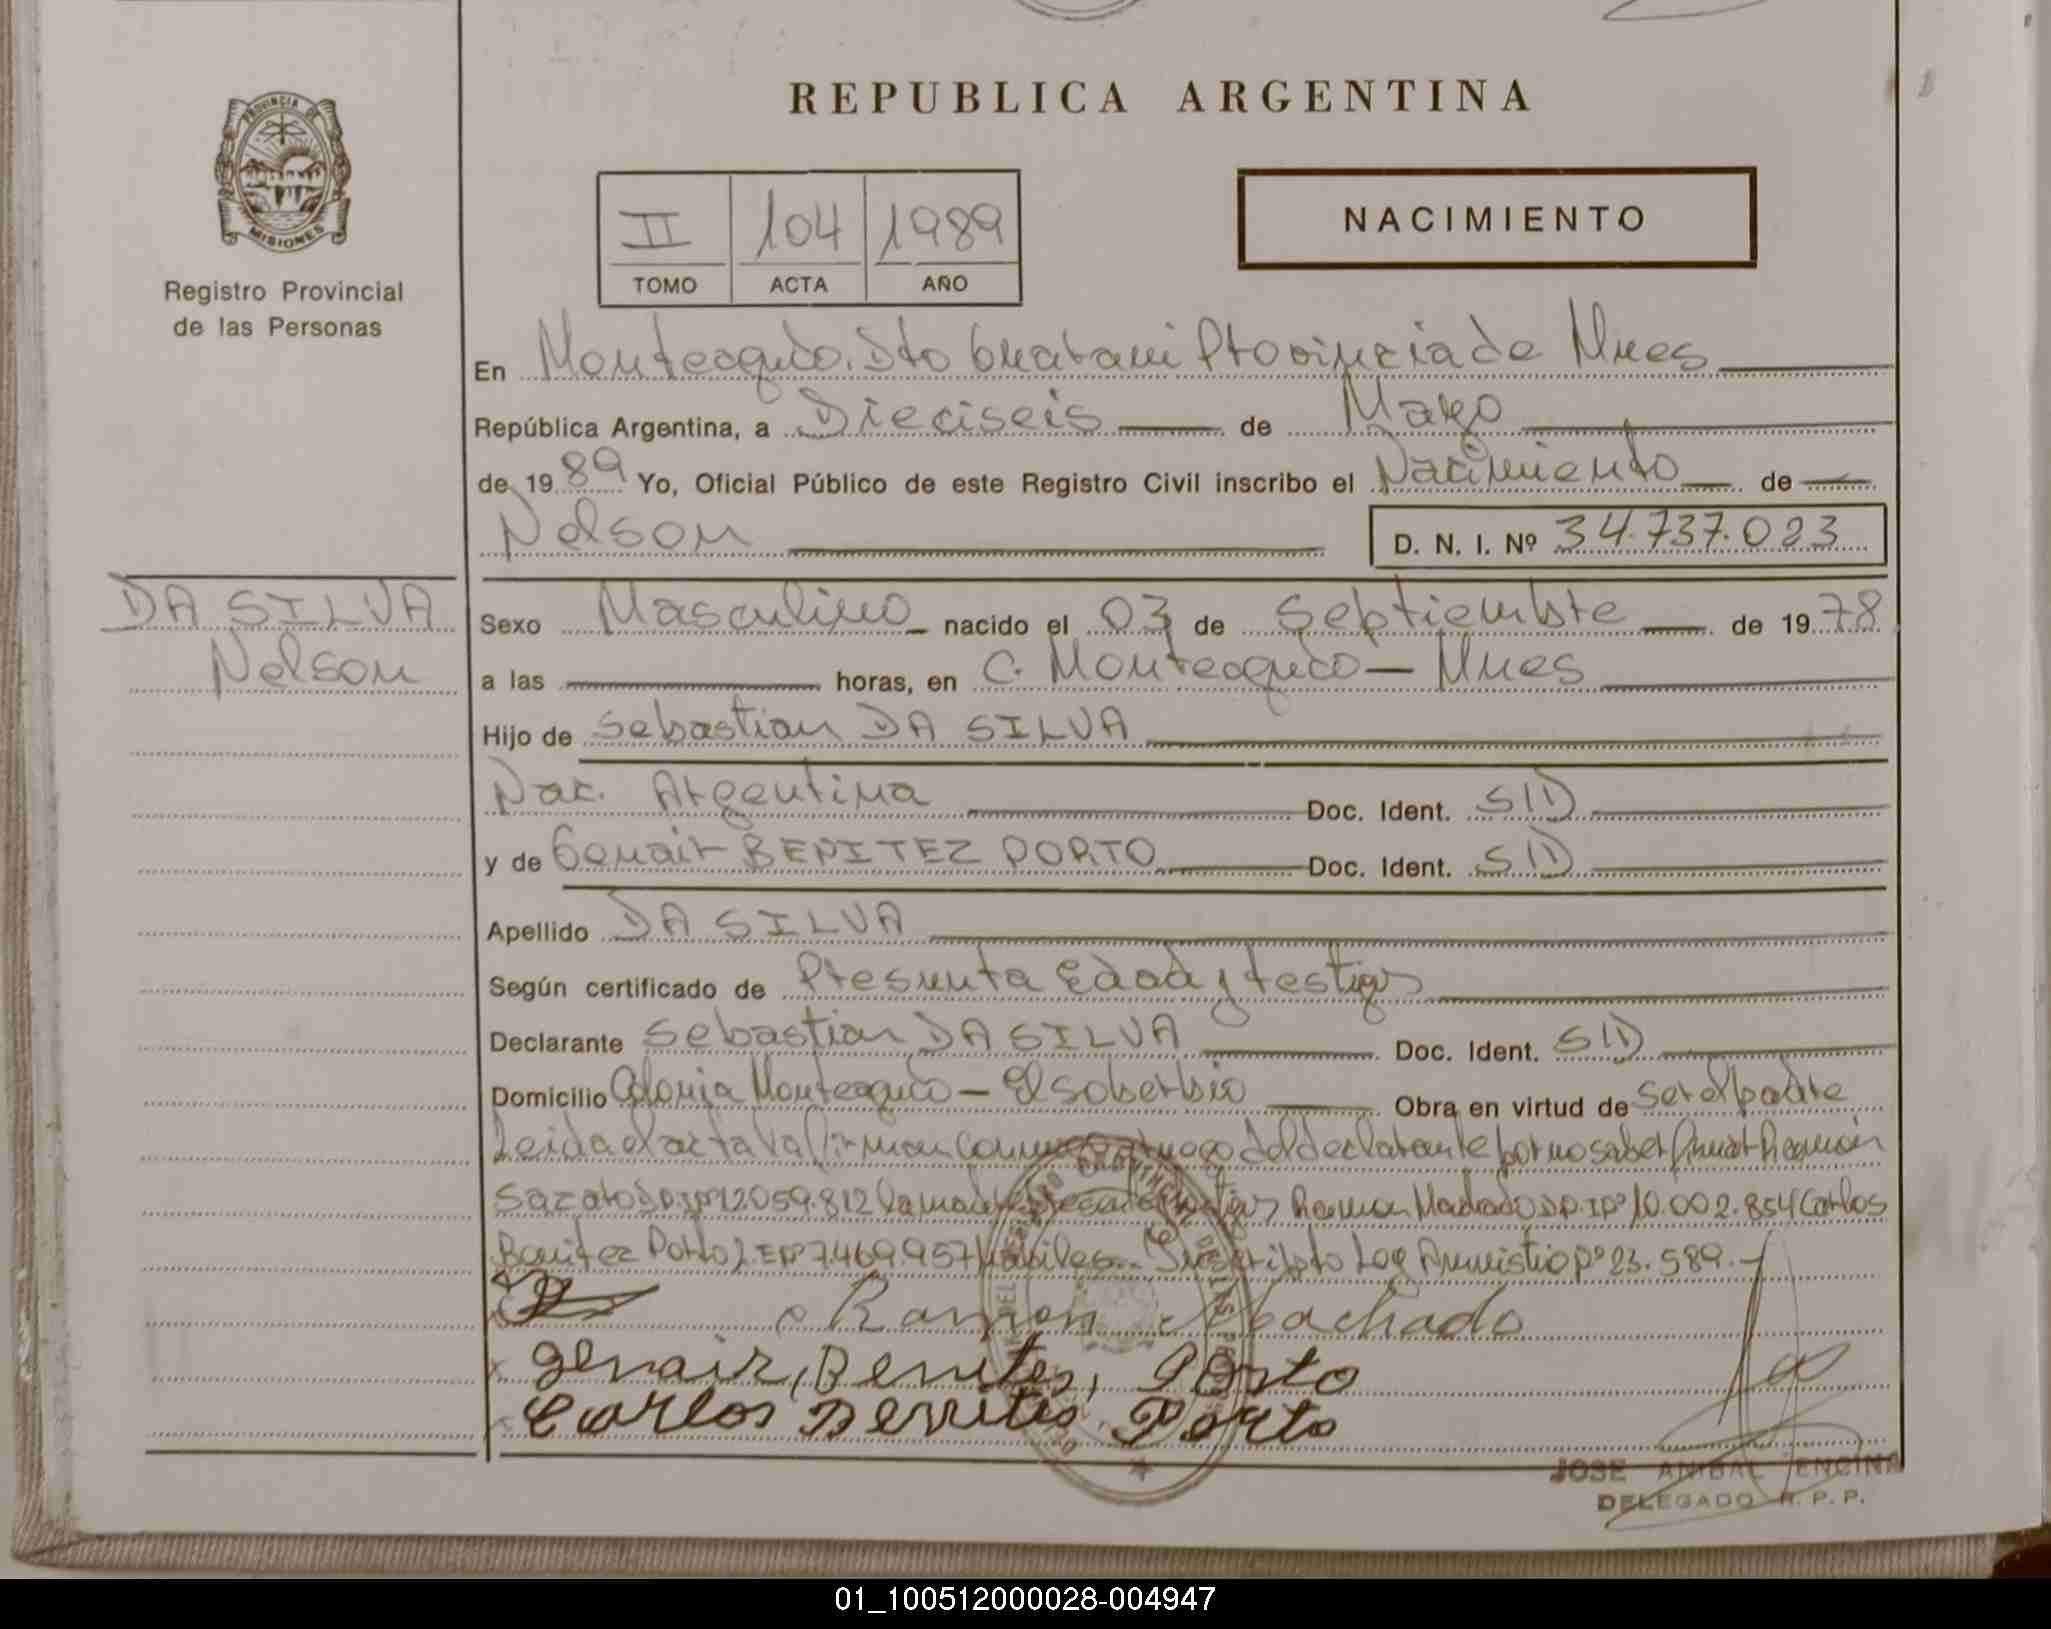 REPUBLICA ARGENTINA
PROVINCIA DE
MISIONES
Registro Provincial
de las Personas
II 104 1989
TOMO ACTA AÑO
NACIMIENTO
En Monteagudo. Dto Guarani Provincia de Mnes
República Argentina, a Dieciseis de Mayo
de 1989 Yo, Oficial Público de este Registro Civil inscribo el Nacimiento de
Nelson D. N. I. Nº 34.737.023
DA SILVA
Nelson
Sexo Masculino nacido el 03 de Septiembre de 1978
a las horas, en C. Monteagudo - Mnes
Hijo de Sebastian DA SILVA
Nac. Argentina Doc. Ident. S/D
y de Genair BENITEZ PORTO Doc. Ident. S/D
Apellido DA SILVA
Según certificado de Presunta Edad y testigos
Declarante Sebastian DA SILVA Doc. Ident. S/D
Domicilio Colonia Monteagudo - El Soberbio Obra en virtud de ser el padre
Leida el acta la firman conmigo a ruego del declarante por no saber firmar Ramon
D.N.I Nº 12.059.812 la madre testigos Ramon Machado D.N.I Nº 10.002.854 Carlos
Benitez Porto L.E Nº 7.469.957 habiles. Inscripto Ley Amnistia Nº 23.589.-
Ramon Machado
genair, Benites, Porto
Carlos Benites Porto
JOSE ANIBAL ENCINA
DELEGADO R. P. P.
01_100512000028-004947